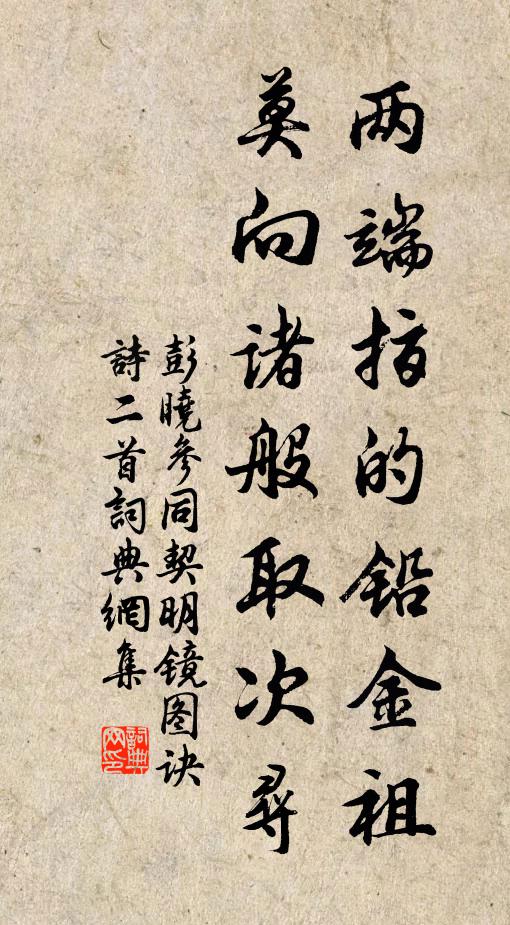 两端指的铅金祖
莫向诸般取次尋
彭曉參同契明镜图诀
詩二首詞典網集
詞典网印